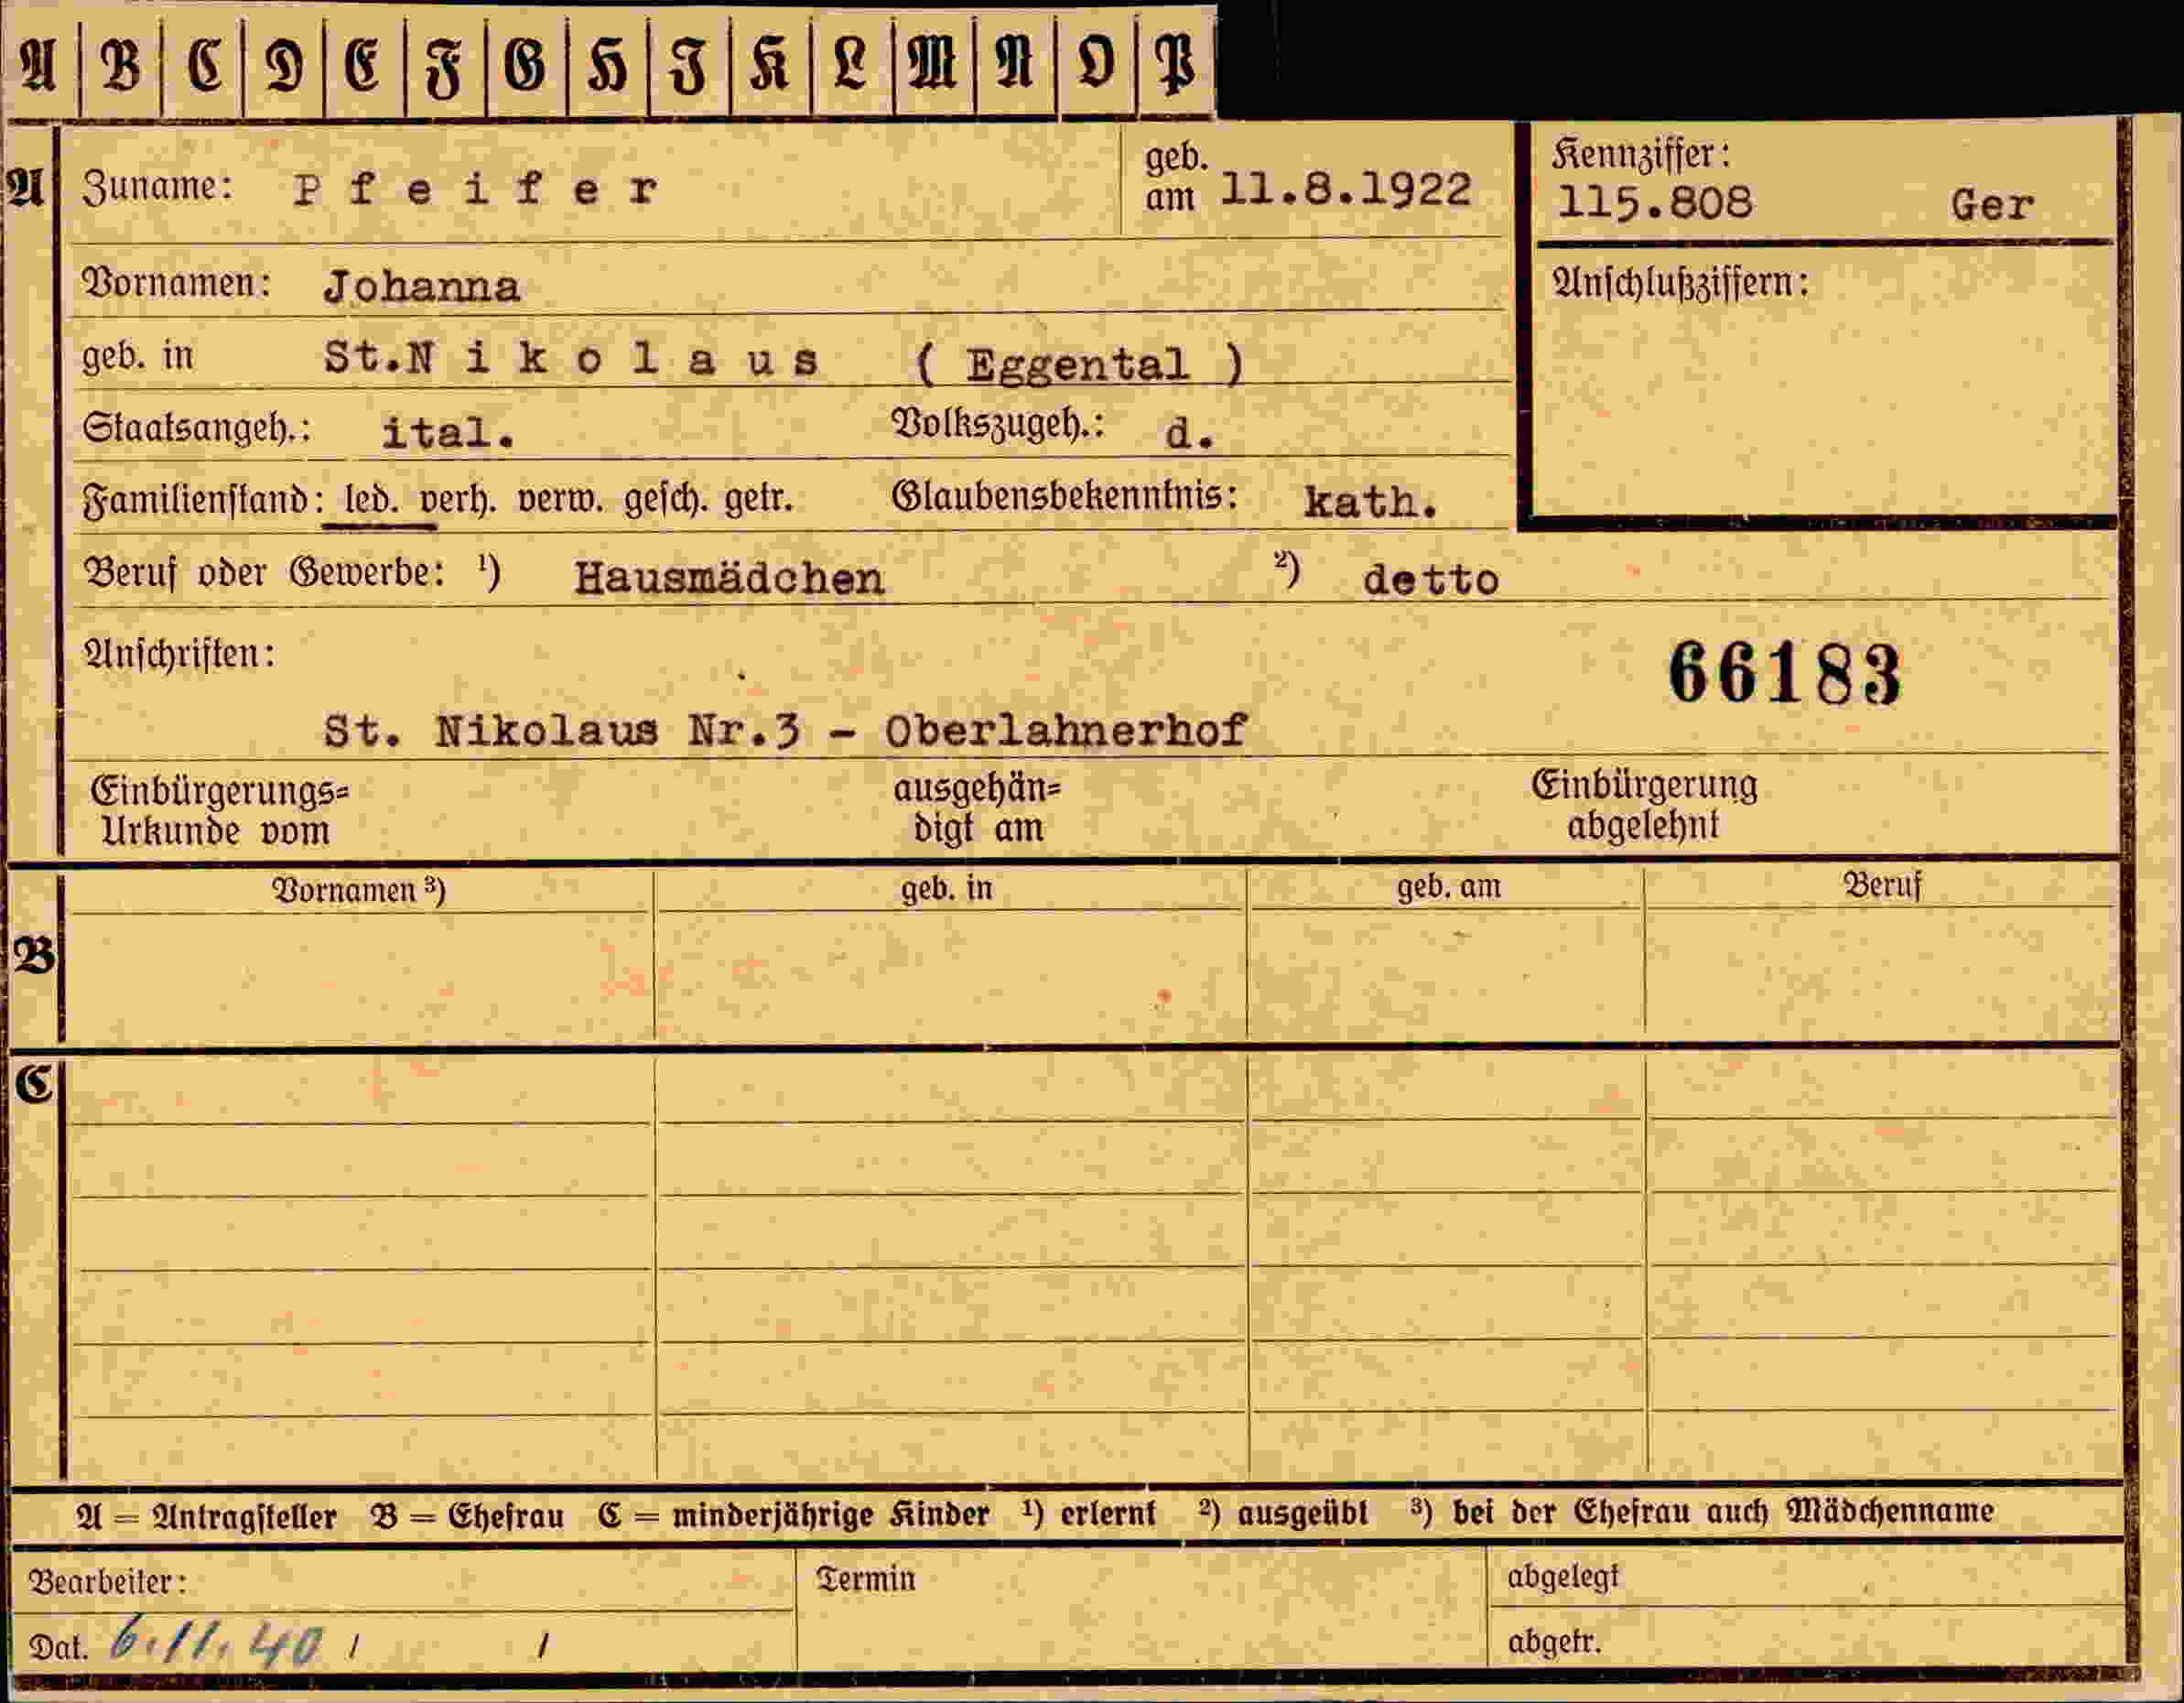 A B C D E F G H I K L M N O P
A Zuname: Pfeifer geb. am 11.8.1922
Kennziffer:
115.808 Ger
Vornamen: Johanna
Anschlußziffern:
geb. in St.Nikolaus ( Eggental )
Staatsangeh.: ital. Volkszugeh.: d.
Familienstand: led. verh. verw. gesch. getr. Glaubensbekenntnis: kath.
Beruf oder Gewerbe: ¹) Hausmädchen ²) detto
Anschriften:
66183
St. Nikolaus Nr.3 - Oberlahnerhof
Einbürgerungs= ausgehän= Einbürgerung
Urkunde vom digt am abgelehnt
B Vornamen ³) geb. in geb. am Beruf
C
A = Antragsteller B = Ehefrau C = minderjährige Kinder ¹) erlernt ²) ausgeübt ³) bei der Ehefrau auch Mädchenname
Bearbeiter: Termin abgelegt
Dat. 6.11.40 / / abgetr.